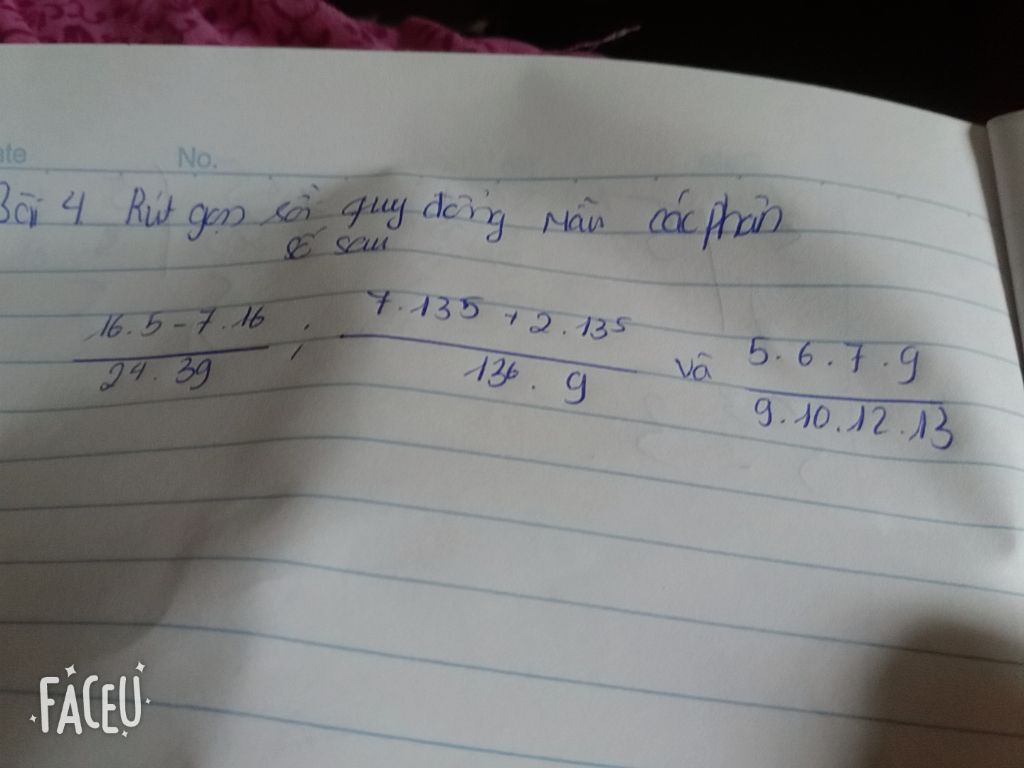 ate No.
Bài 4 Rút gọn rồi quy đồng mẫu các phân
số sau
16.5-7.16 / 24.39 ; 7.135+2.135 / 136.9 và 5.6.7.9 / 9.10.12.13
FACEU